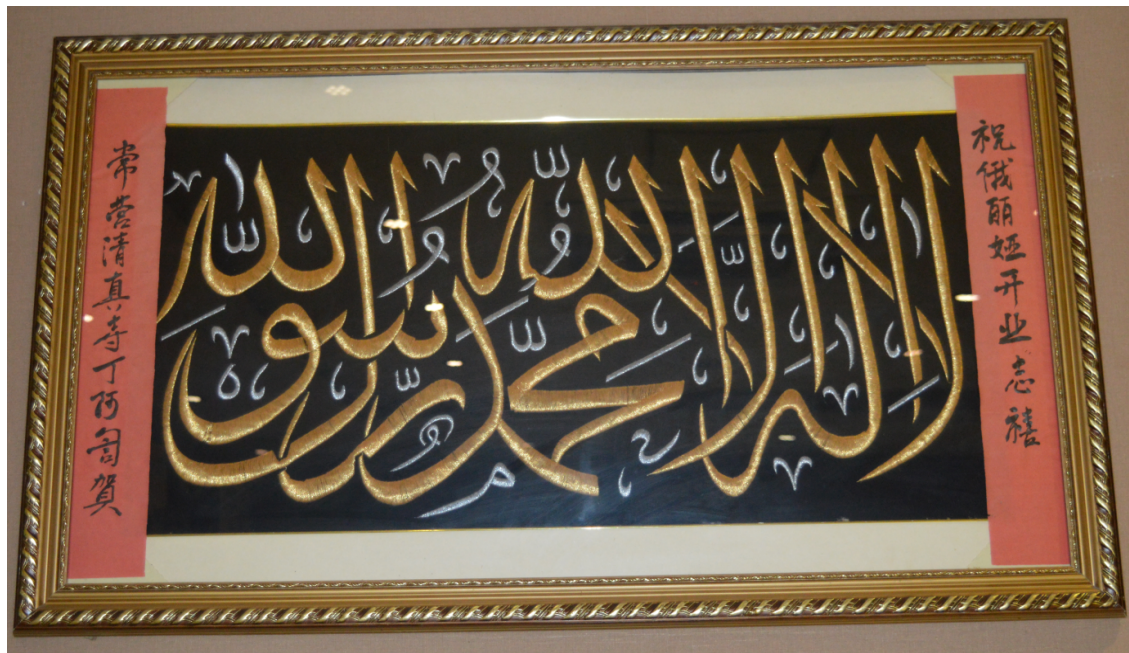 祝俄丽娅开业志禧
لا إله إلا الله محمد رسول الله
常营清真寺丁阿訇賀